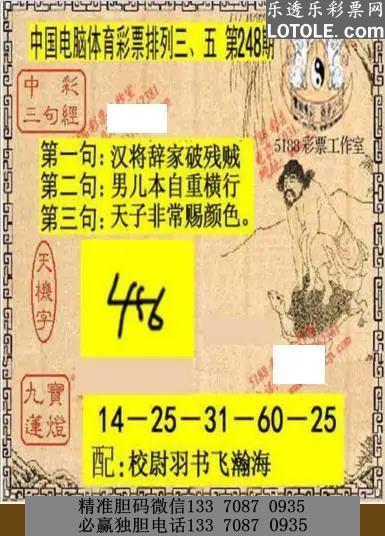 乐透乐彩票网
LOTOLE.COM
中国电脑体育彩票排列三、五 第248期
中 彩
三句經
5188彩票工作室
第一句:汉将辞家破残贼
第二句:男儿本自重横行
第三句:天子非常赐颜色。
天機字
456
九 寶
蓮燈
14-25-31-60-25
配:校尉羽书飞瀚海
精准胆码微信133 7087 0935
必赢独胆电话133 7087 0935